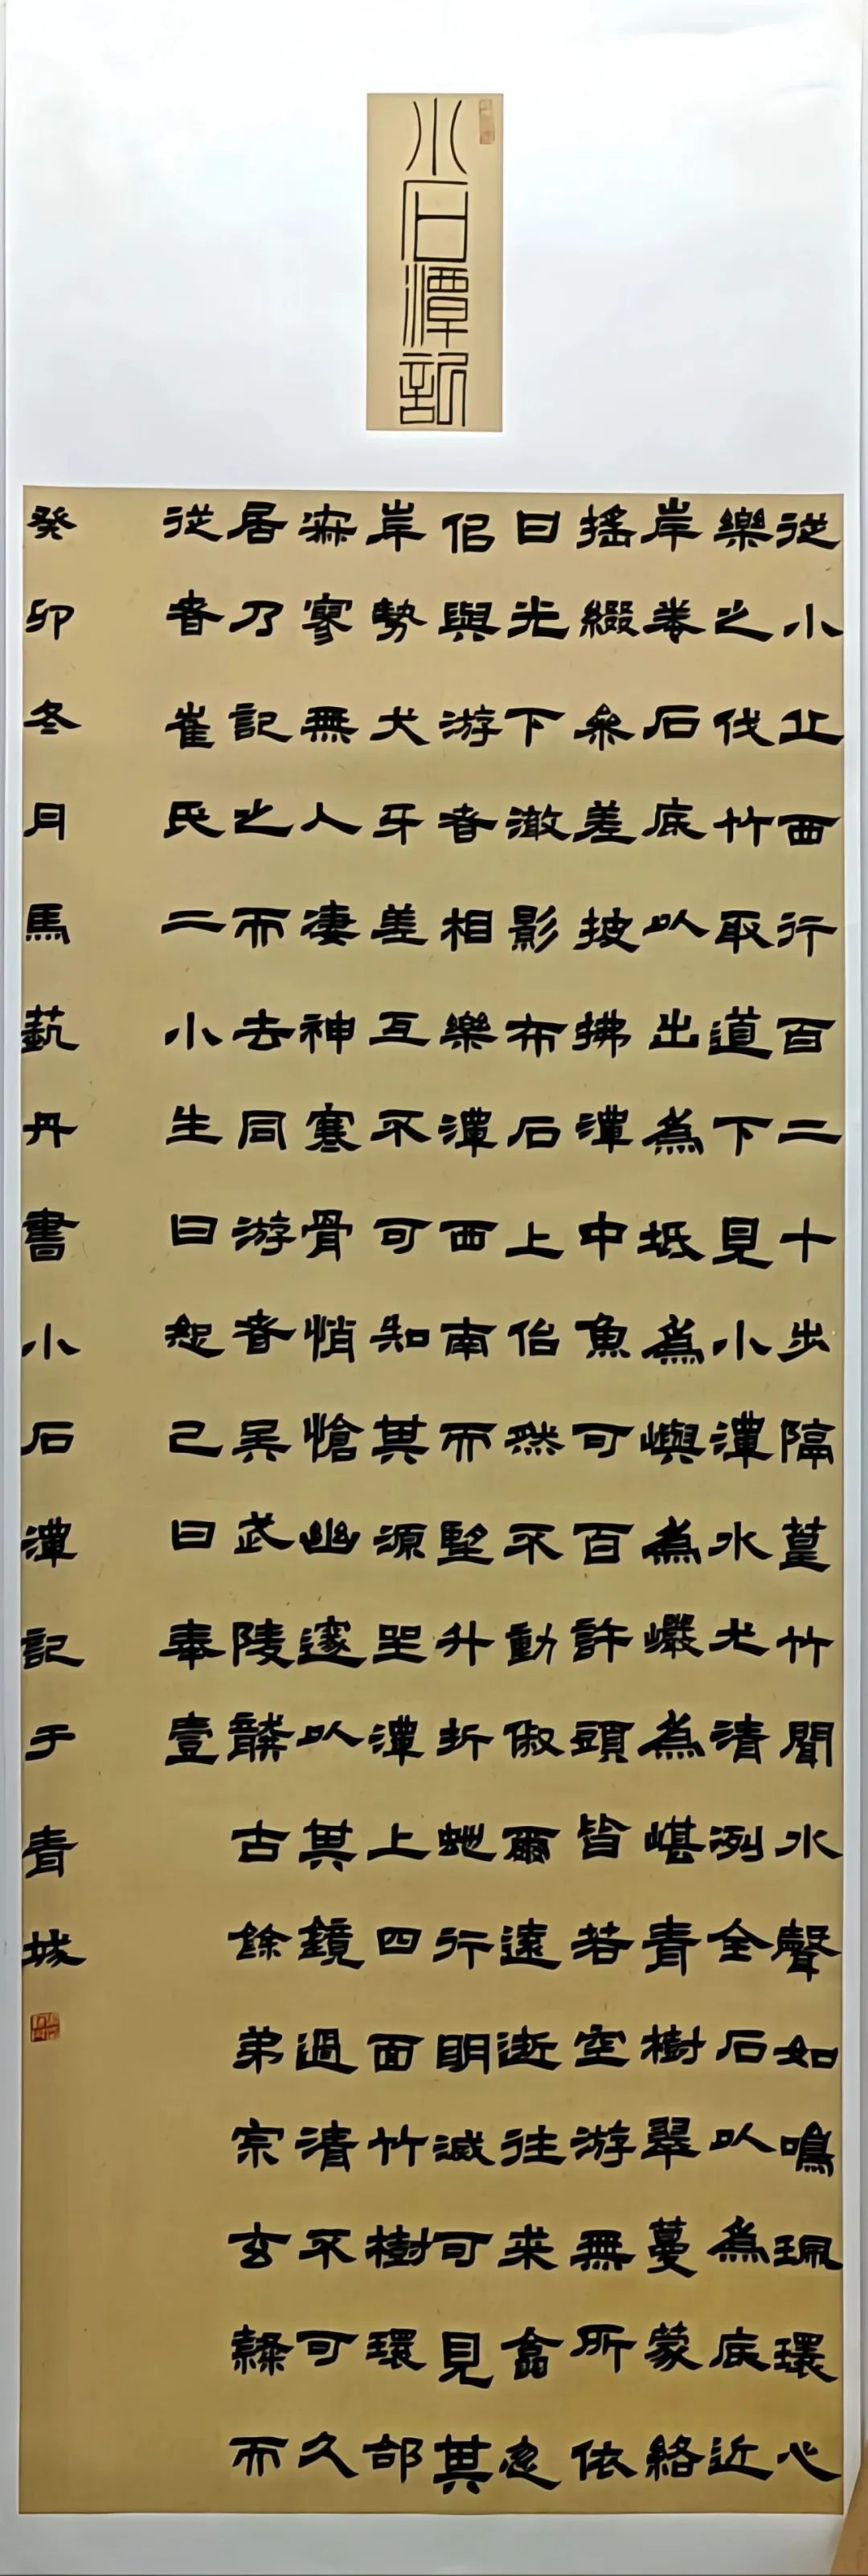 小石潭記
從小丘西行百二十步隔篁竹聞水聲如鳴珮環心
樂之伐竹取道下見小潭水尤清冽全石以為底近
岸卷石底以出為坻為嶼為巖為嵁青樹翠蔓蒙絡
搖綴參差披拂潭中魚可百許頭皆若空游無所依
日光下澈影布石上佁然不動俶爾遠逝往來翕忽
佀與游者相樂潭西南而望斗折蛇行明滅可見其
岸勢犬牙差互不可知其源坐潭上四面竹樹環合
寂寥無人凄神寒骨悄愴幽邃以其鏡過清不可久
居乃記之而去同游者吳武陵龔古餘弟宗玄隸而
從者崔氏二小生曰恕己曰奉壹
癸卯冬月馬藝丹書小石潭記于青城